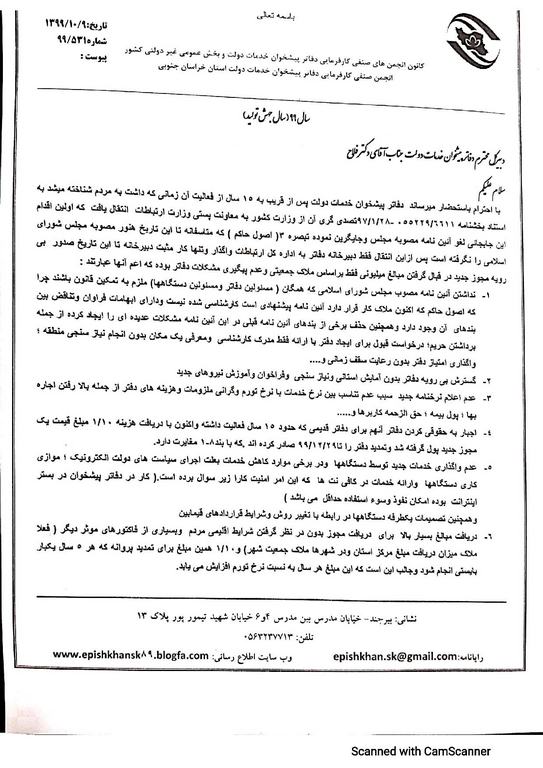 باسمه تعالی
تاریخ:۱۳۹۹/۱۰/۹
شماره۹۹/۵۳۱
پیوست :
کانون انجمن های صنفی کارفرمایی دفاتر پیشخوان خدمات دولت و بخش عمومی غیر دولتی کشور
انجمن صنفی کارفرمایی دفاتر پیشخوان خدمات دولت استان خراسان جنوبی
سال ۹۹(سال جهش تولید)
دبیرکل محترم دفاتر پیشخوان خدمات دولت جناب آقای دکتر فلاح
سلام علیکم
با احترام باستحضار میرساند دفاتر پیشخوان خدمات دولت پس از قریب به ۱۵ سال از فعالیت آن زمانی که داشت به مردم شناخته میشد به
استناد بخشنامه ۰۵۵۲۲۹/۶۶۱۱ -۹۷/۱/۲۸تصدی گری آن از وزارت کشور به معاونت پستی وزارت ارتباطات انتقال یافت که اولین اقدام
این جابجائی لغو آئین نامه مصوبه مجلس وجایگزین نموده تبصره ۳( اصول حاکم ) که متاسفانه تا این تاریخ هنور مصوبه مجلس شورای
اسلامی را نگرفته است پس ازاین انتقال فقط دبیرخانه دفاتر به اداره کل ارتباطات واگذار وتنها کار مثبت دبیرخانه تا این تاریخ صدور بی
رویه مجوز جدید در قبال گرفتن مبالغ میلیونی فقط براساس ملاک جمعیتی وعدم پیگیری مشکلات دفاتر بوده که اعم آنها عبارتند :
۱- نداشتن آئین نامه مصوب مجلس شورای اسلامی که همگان ( مسئولین دفاتر ومسئولین دستگاهها) ملزم به تمکین قانون باشند چرا
که اصول حاکم که اکنون ملاک کار قرار دارد آئین نامه پیشنهادی است کارشناسی شده نیست ودارای ابهامات فراوان وتناقض بین
بندهای آن وجود دارد وهمچنین حذف برخی از بندهای آئین نامه قبلی در این آئین نامه مشکلات عدیده ای را ایجاد کرده از جمله
برداشتن حریم؛ درخواست قبول برای ایجاد دفتر با ارائه فقط مدرک کارشناسی ومعرفی یک مکان بدون انجام نیاز سنجی منطقه ؛
واگذاری امتیاز دفتر بدون رعایت سقف زمانی و....
۲- گسترش بی رویه دفاتر بدون آمایش استانی ونیاز سنجی وفراخوان وآموزش نیروهای جدید
۳- عدم اعلام نرخنامه جدید سبب عدم تناسب بین نرخ خدمات با نرخ تورم وگرانی ملزومات وهزینه های دفتر از جمله بالا رفتن اجاره
بها ؛ پول بیمه ؛ حق الزحمه کاربرها و.....
۴- اجبار به حقوقی کردن دفاتر آنهم برای دفاتر قدیمی که حدود ۱۵ سال فعالیت داشته واکنون با دریافت هزینه ۱/۱۰ مبلغ قیمت یک
مجوز جدید پول گرفته شد وتمدید دفتر را تا۹۹/۱۲/۲۹ صادر کرده اند ،که با بند۸-۱ مغایرت دارد.
۵- عدم واگذاری خدمات جدید توسط دستگاهها ودر برخی موارد کاهش خدمات بعلت اجرای سیاست های دولت الکترونیک ؛ موازی
کاری دستگاهها وارائه خدمات در کافی نت ها که این امر امنیت کارا زیر سوال برده است.( کار در دفاتر پیشخوان در بستر
اینترانت بوده امکان نفوذ وسوء استفاده حداقل می باشد )
وهمچنین تصمیمات یکطرفه دستگاهها در رابطه با تغییر روش وشرایط قراردادهای قیمابین
۶- دریافت مبالغ بسیار بالا برای دریافت مجوز بدون در نظر گرفتن شرایط اقلیمی مردم وبسیاری از فاکتورهای موثر دیگر ( فعلا
ملاک میزان دریافت مبلغ مرکز استان ودر شهرها ملاک جمعیت شهر) و۱/۱۰ همین مبلغ برای تمدید پروانه که هر ۵ سال یکبار
بایستی انجام شود وجالب این است که این مبلغ هر سال به نسبت نرخ تورم افزایش می یابد.
نشانی: بیرجند- خیابان مدرس بین مدرس ۴و۶ خیابان شهید تیمور پور پلاک ۱۳
تلفن: ۰۵۶۳۲۳۷۷۱۳
رایانامه:epishkhan.sk@gmail.com وب سایت اطلاع رسانی: www.epishkhansk۸۹.blogfa.com
Scanned with CamScanner